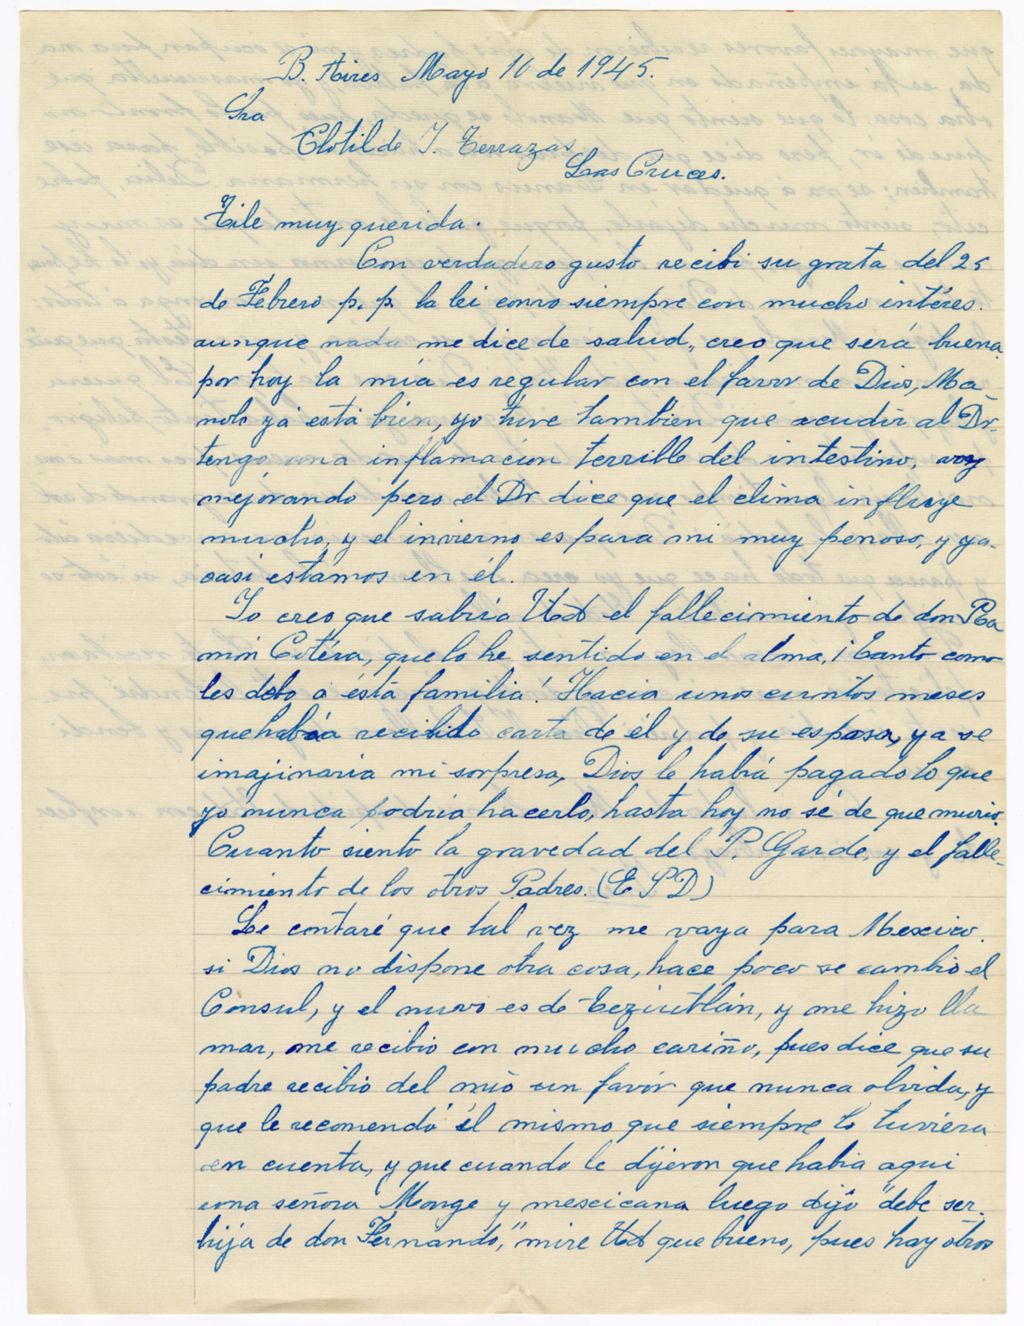 B. Aires Mayo 10 de 1945.
Sra
Clotilde T. Terrazas
Las Cruces.
Tile muy querida.
Con verdadero gusto recibi su grata del 25
de Febrero p. p. la lei como siempre con mucho intéres.
aunque nada me dice de salud, creo que será buena
por hoy la mia es regular con el favor de Dios, Ma
nolo ya está bien, yo tuve tambien que acudir al Dr.
tengo una inflamación terrible del intestino, voy
mejorando pero el Dr dice que el clima influye
mucho, y el invierno es para mi muy penoso, y ya-
casi estamos en él.
Yo creo que sabria Ud el fallecimiento de don Ra
món Cotéra, que lo he sentido en el alma, ¡Tanto como
les debo a ésta familia! Hacia unos cuntos meses
que había recibido carta de él y de su esposa, ya se
imajinaria mi sorpresa, Dios le habrá pagado lo que
yo nunca podria hacerlo, hasta hoy no sé de que murio.
Cuanto siento la gravedad del P. Garde, y el falle-
cimiento de los otros Padres. (E P D)
Le contaré que tal vez me vaya para Mexico.
si Dios no dispone otra cosa, hace poco se cambió el
Consul, y el nuevo es de Teziutlán, y me hizo lla
mar, me recibio con mucho cariño, pues dice que su
padre recibió del mio un favór que nunca olvida, y
que le recomendó él mismo que siempre lo tuviéra
en cuenta, y que cuando le dijeron que habia aqui
una señora Monge y mexicana luego dijo "debe ser.
hija de don Fernando," mire Ud que bueno, pues hay otros